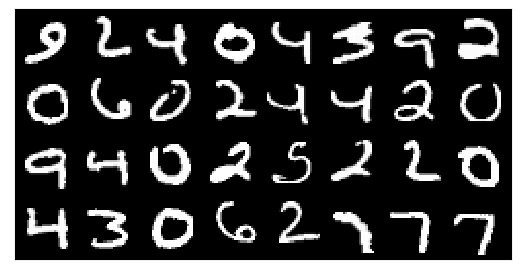 9 2 4 0 4 3 9 2
0 6 0 2 4 4 2 0
9 4 0 2 5 2 2 0
4 3 0 6 2 7 7 7